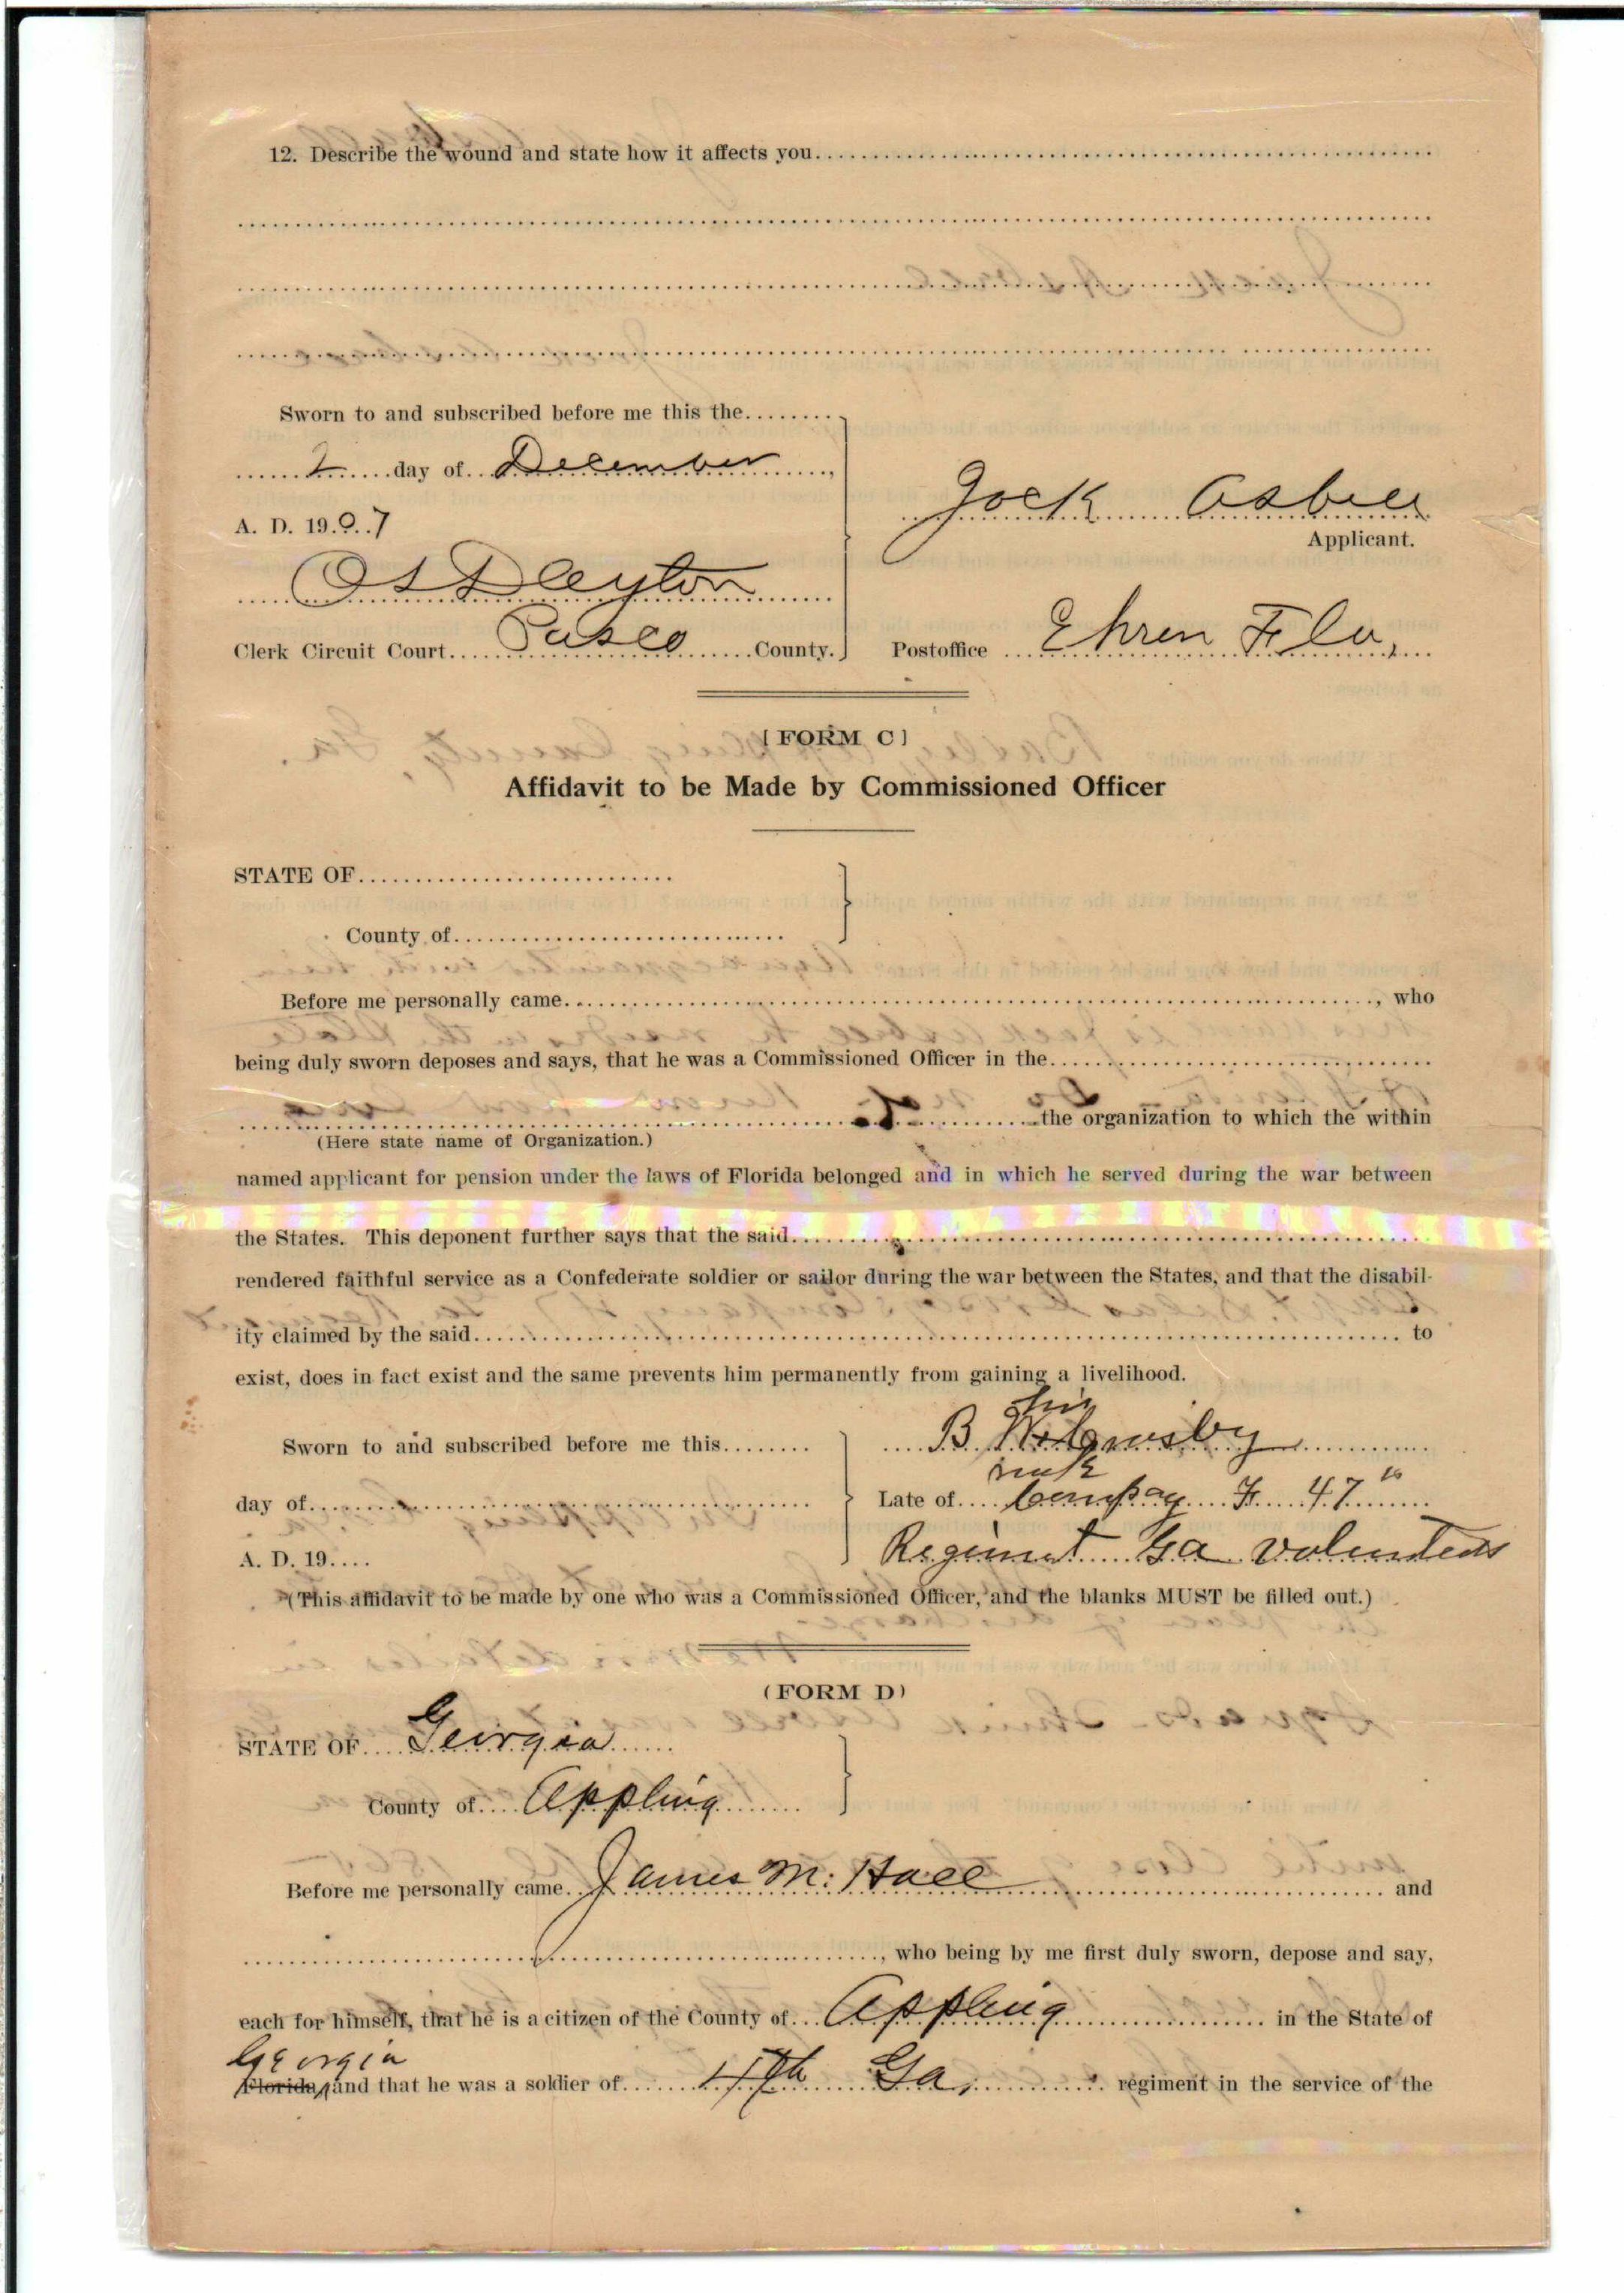 12. Describe the wound and state how it affects you
Sworn to and subscribed before me this the
2 day of December
A. D. 1907
Jock Asbell
Applicant.
O L Dayton
Clerk Circuit Court Pasco County.
Postoffice Ehren Fla,
[FORM C]
Affidavit to be Made by Commissioned Officer
STATE OF
County of
Before me personally came, who
being duly sworn deposes and says, that he was a Commissioned Officer in the
the organization to which the within
(Here state name of Organization.)
named applicant for pension under the laws of Florida belonged and in which he served during the war between
the States. This deponent further says that the said
rendered faithful service as a Confederate soldier or sailor during the war between the States, and that the disabil-
ity claimed by the said to
exist, does in fact exist and the same prevents him permanently from gaining a livelihood.
Sworn to and subscribed before me this
day of
A. D. 19
his
B
mark
Late of Company F 47th
Regiment Ga Volunteers
(This affidavit to be made by one who was a Commissioned Officer, and the blanks MUST be filled out.)
(FORM D)
STATE OF Georgia
County of Appling
Before me personally came James M. Hall and
, who being by me first duly sworn, depose and say,
each for himself, that he is a citizen of the County of Appling in the State of
Georgia
Florida, and that he was a soldier of 47th Ga, regiment in the service of the